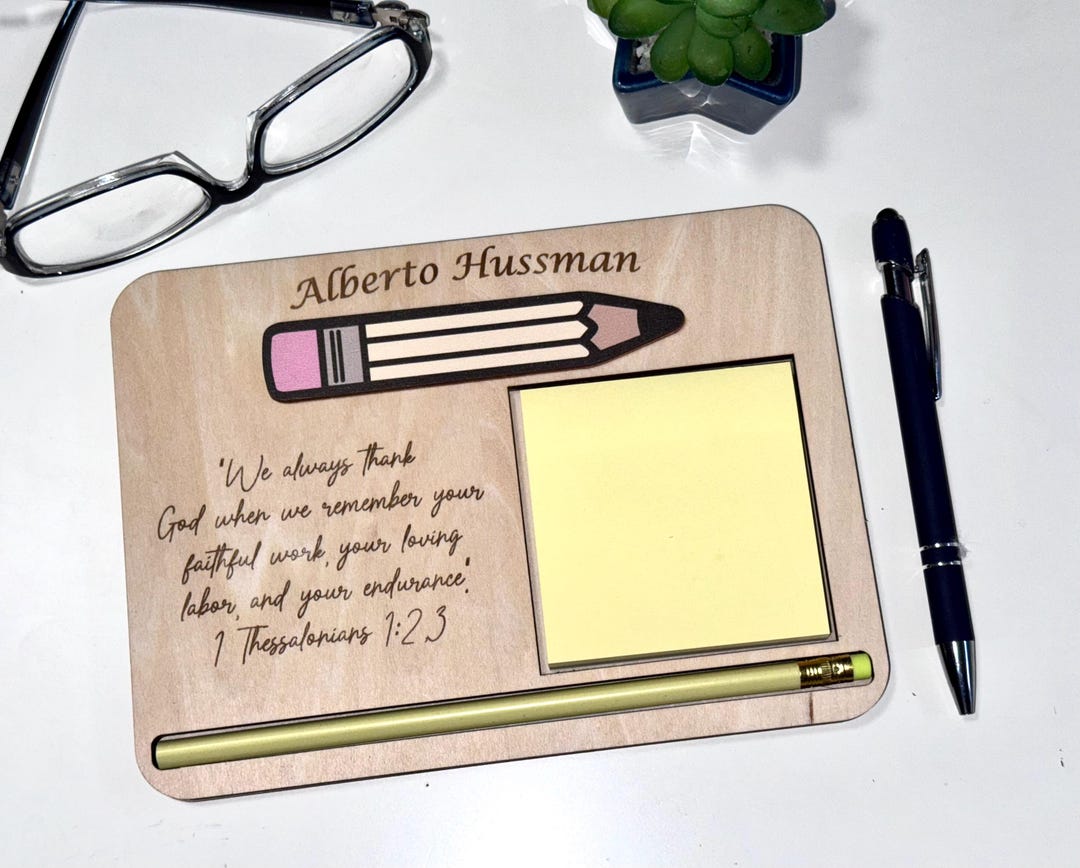 Alberto Hussman
"We always thank
God when we remember your
faithful work, your loving
labor, and your endurance".
1 Thessalonians 1:2,3